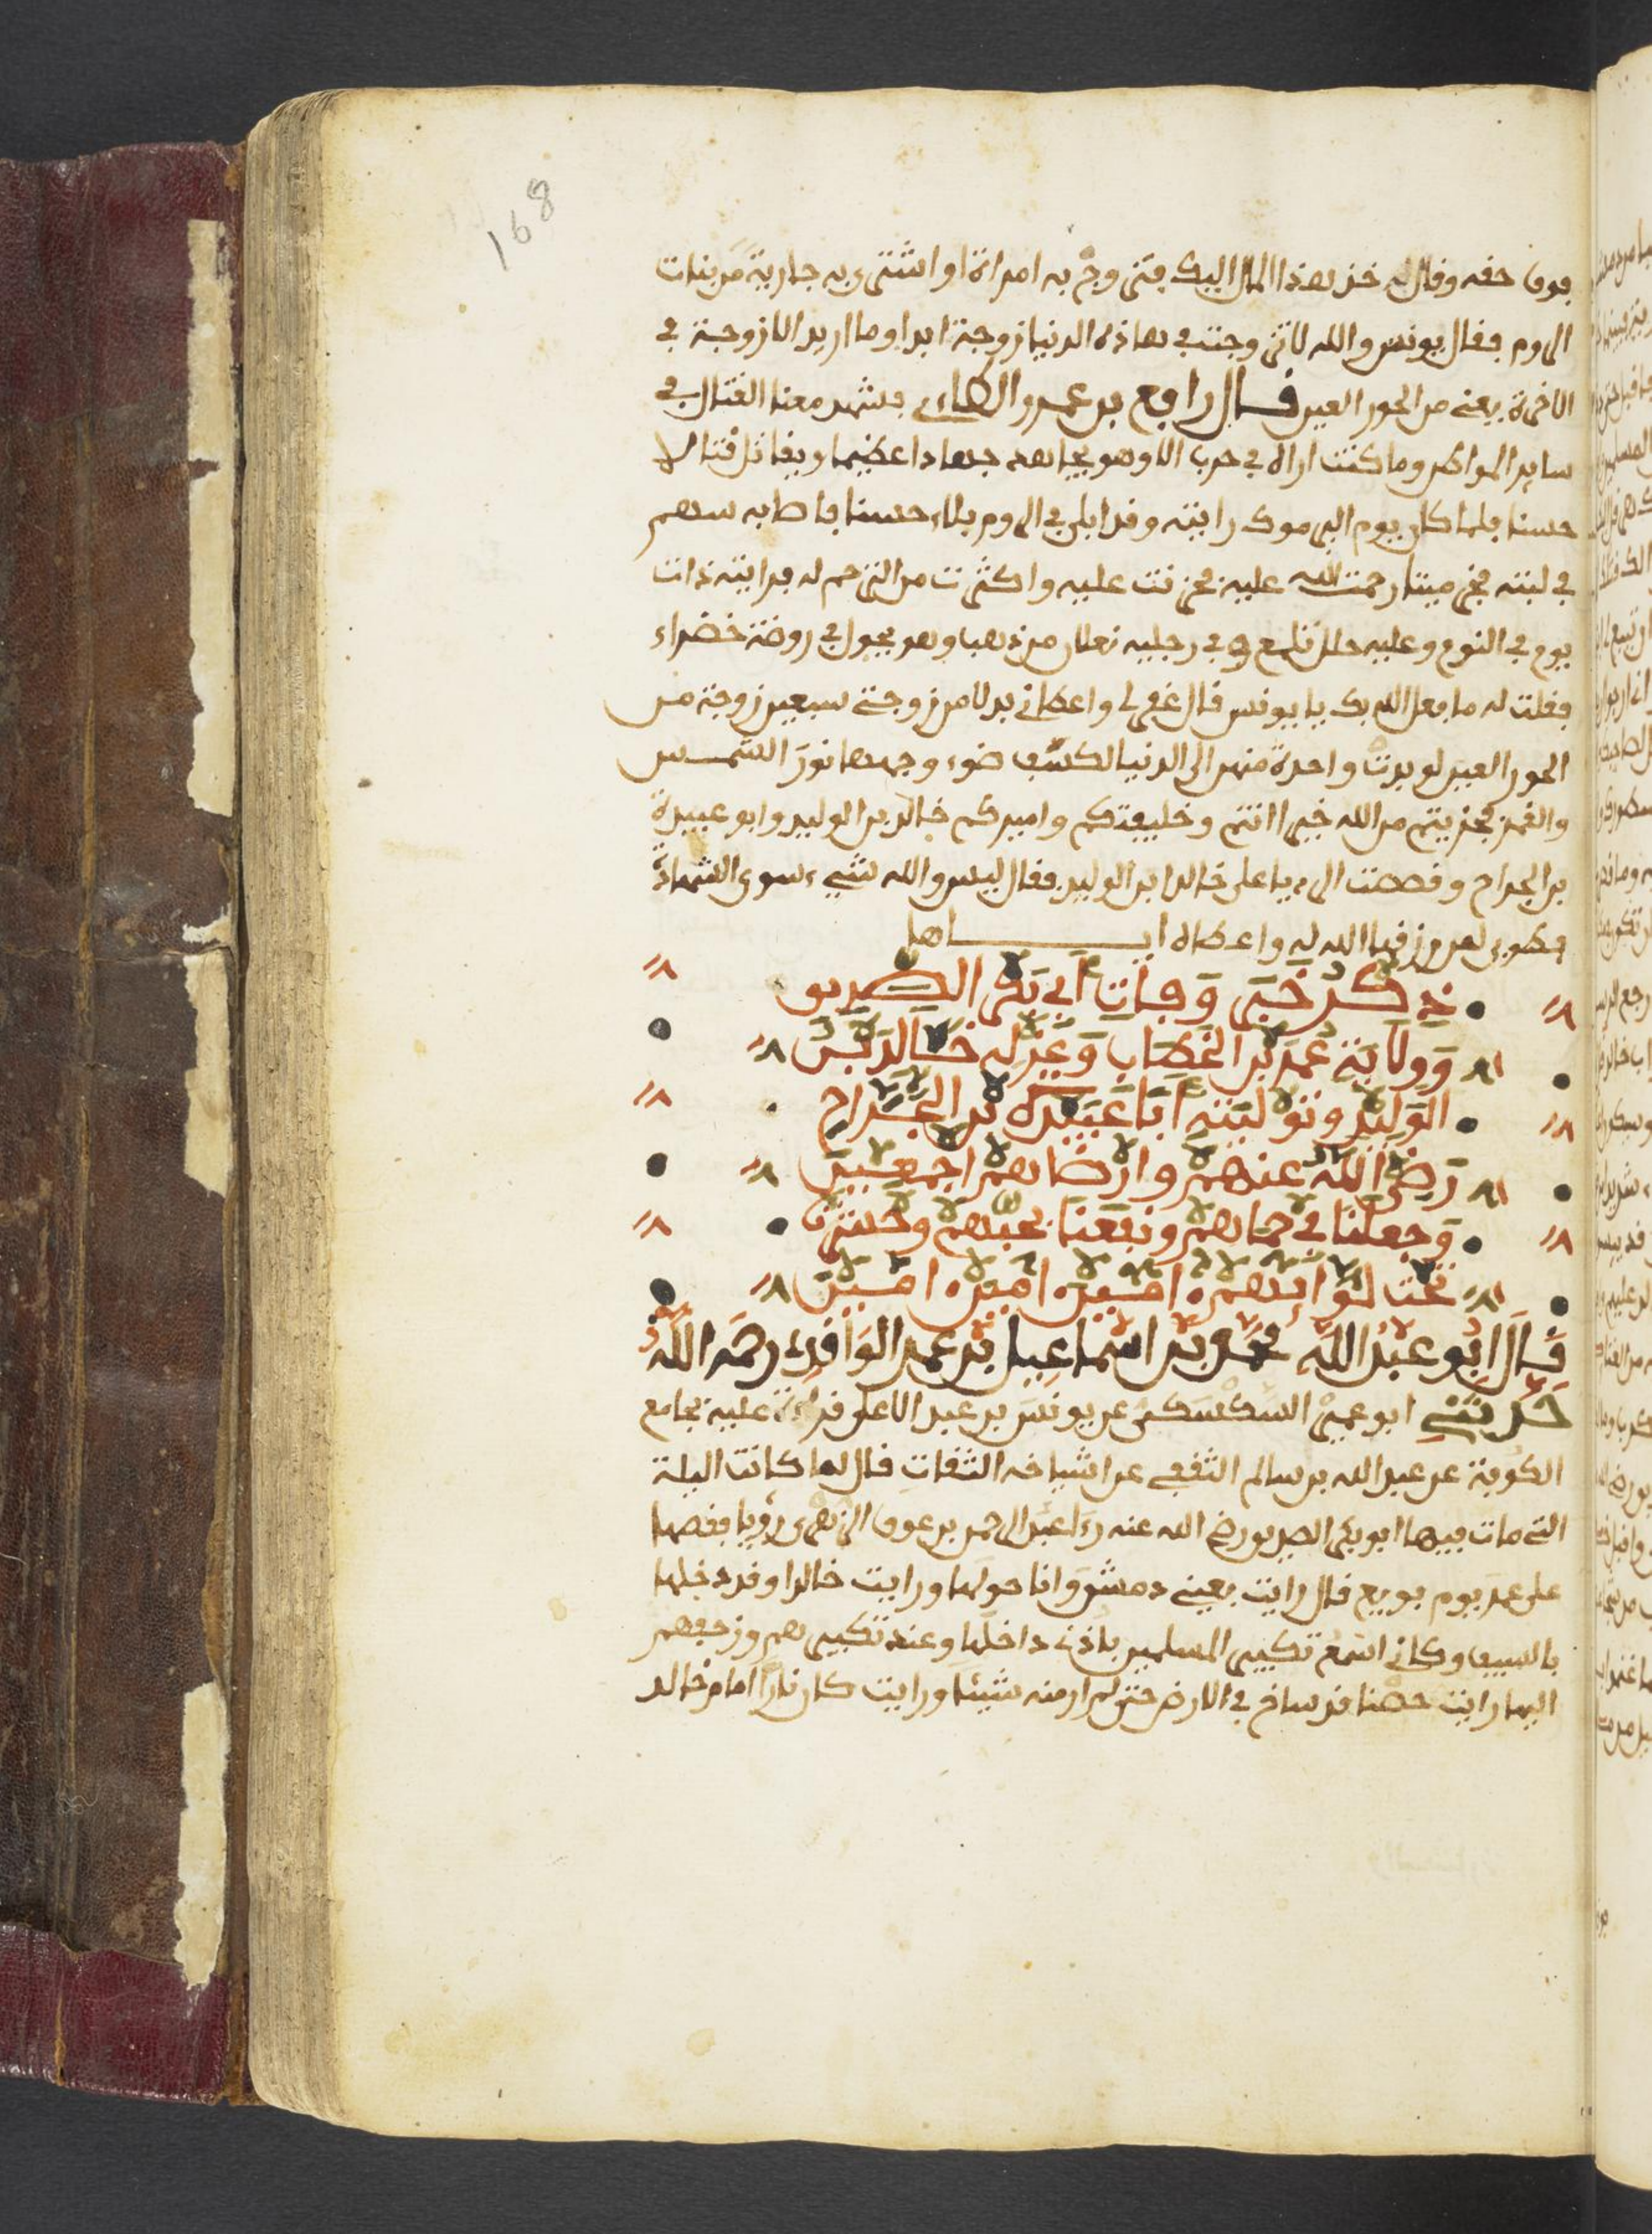 168
فوق حقه وقال له خذ هذا المال اليك فتزوج به امراة او اشترى به جارية من بنات
الروم فقال يونس والله لا تزوجت في هاذه الدنيا زوجة ابدا وما اريد الا زوجة في
الاخرة يعني من الحور العين قال رافع بن عمرو الطاءي فشهد معنا القتال في
ساير المواكن وما كنت اراه في حرب الا وهو يجاهد جهادا عظيما ويقاتل قتالا
حسنا فلما كان يوم اليرموك رايته وقد ابلى في الروم بلاء حسنا فاصابه سهم
في لبته فخر ميتا رحمت الله عليه فحزنت عليه واكثرت من الترحم له فرايته ذات
يوم في النوم وعليه حلل تلمع وفي رجليه نعلان من ذهب وهو يجول في روضة خضراء
فقلت له ما فعل الله بك يا يونس قال غفر لي واعطاني بدلا من زوجتي سبعين زوجة من
الحور العين لو بدت واحدة منهن الى الدنيا لكسف ضوء وجهها نور الشمس
والقمر فجزيتم من الله خيرا انتم وخليفتكم واميركم خالد بن الوليد وابو عبيدة
بن الجراح وقصصت الرءيا على خالد ابن الوليد فقال ليس والله شيء سوى الشهادة
فطوبى لمن رزقها الله له واعطاه اياها
ذكر خبر وفات ابي بكر الصديق
وولاية عمر بن الخطاب وعزله خالد بن
الوليد وتوليته ابا عبيدة بن الجراح
رضي الله عنهم وارضاهم اجمعين
وجعلنا في حماهم ونفعنا بحبهم وحشرنا
تحت لوائهم امين امين امين
قال ابو عبد الله محمد بن اسماعيل بن عمر الواقدي رحمه الله
حدثني ابو عمير السكسكي عن يونس بن عبد الاعلى قراءة عليه بجامع
الكوفة عن عبد الله بن سالم الثقفي عن اشياخه الثقات قال لما كانت اليلة
التي مات فيها ابو بكر الصديق رضي الله عنه رءا عبد الرحمن بن عوف الزهري رؤيا فقصها
على عمر يوم بويع قال رايت بعيني دمشق وانا حولها ورايت خالدا وقد دخلها
بالسيف وكاني اسمع تكبير المسلمين باذني داخلها وعند تكبيرهم وزحفهم
اليها رايت حصنا قد ساخ في الارض حتى لم ار منه شيئا ورايت كان نارا امام خالد